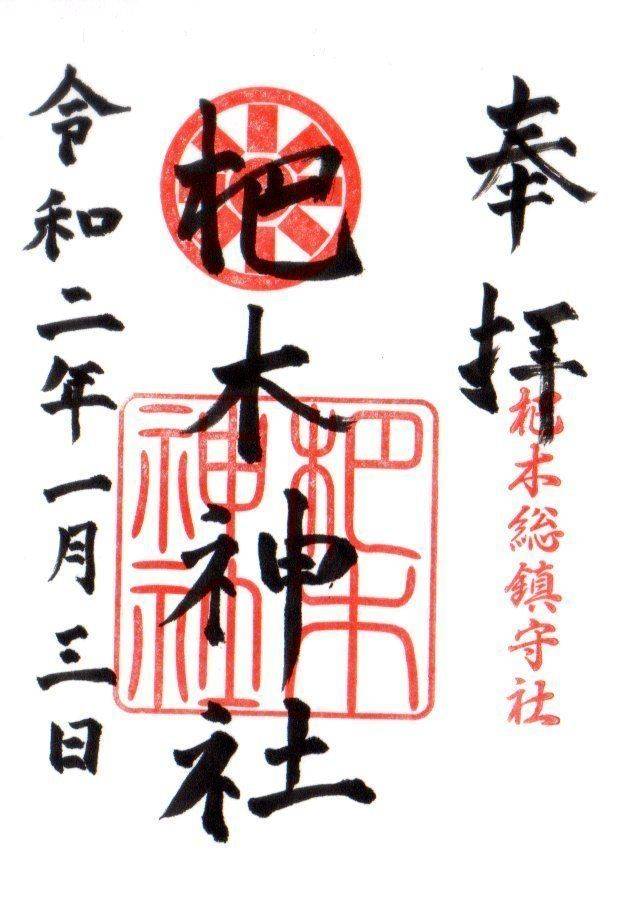 奉拝
杷木総鎮守社
杷木神社
杷木
神社
令和二年一月三日